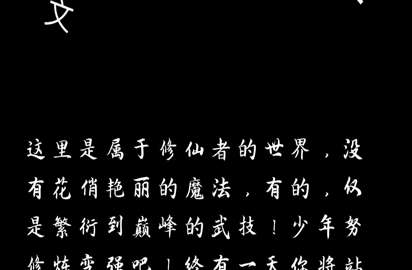 文
这里是属于修仙者的世界，没
有花俏艳丽的魔法，有的，仅
是繁衍到巅峰的武技！少年努
修炼变强吧！终有一天你将站